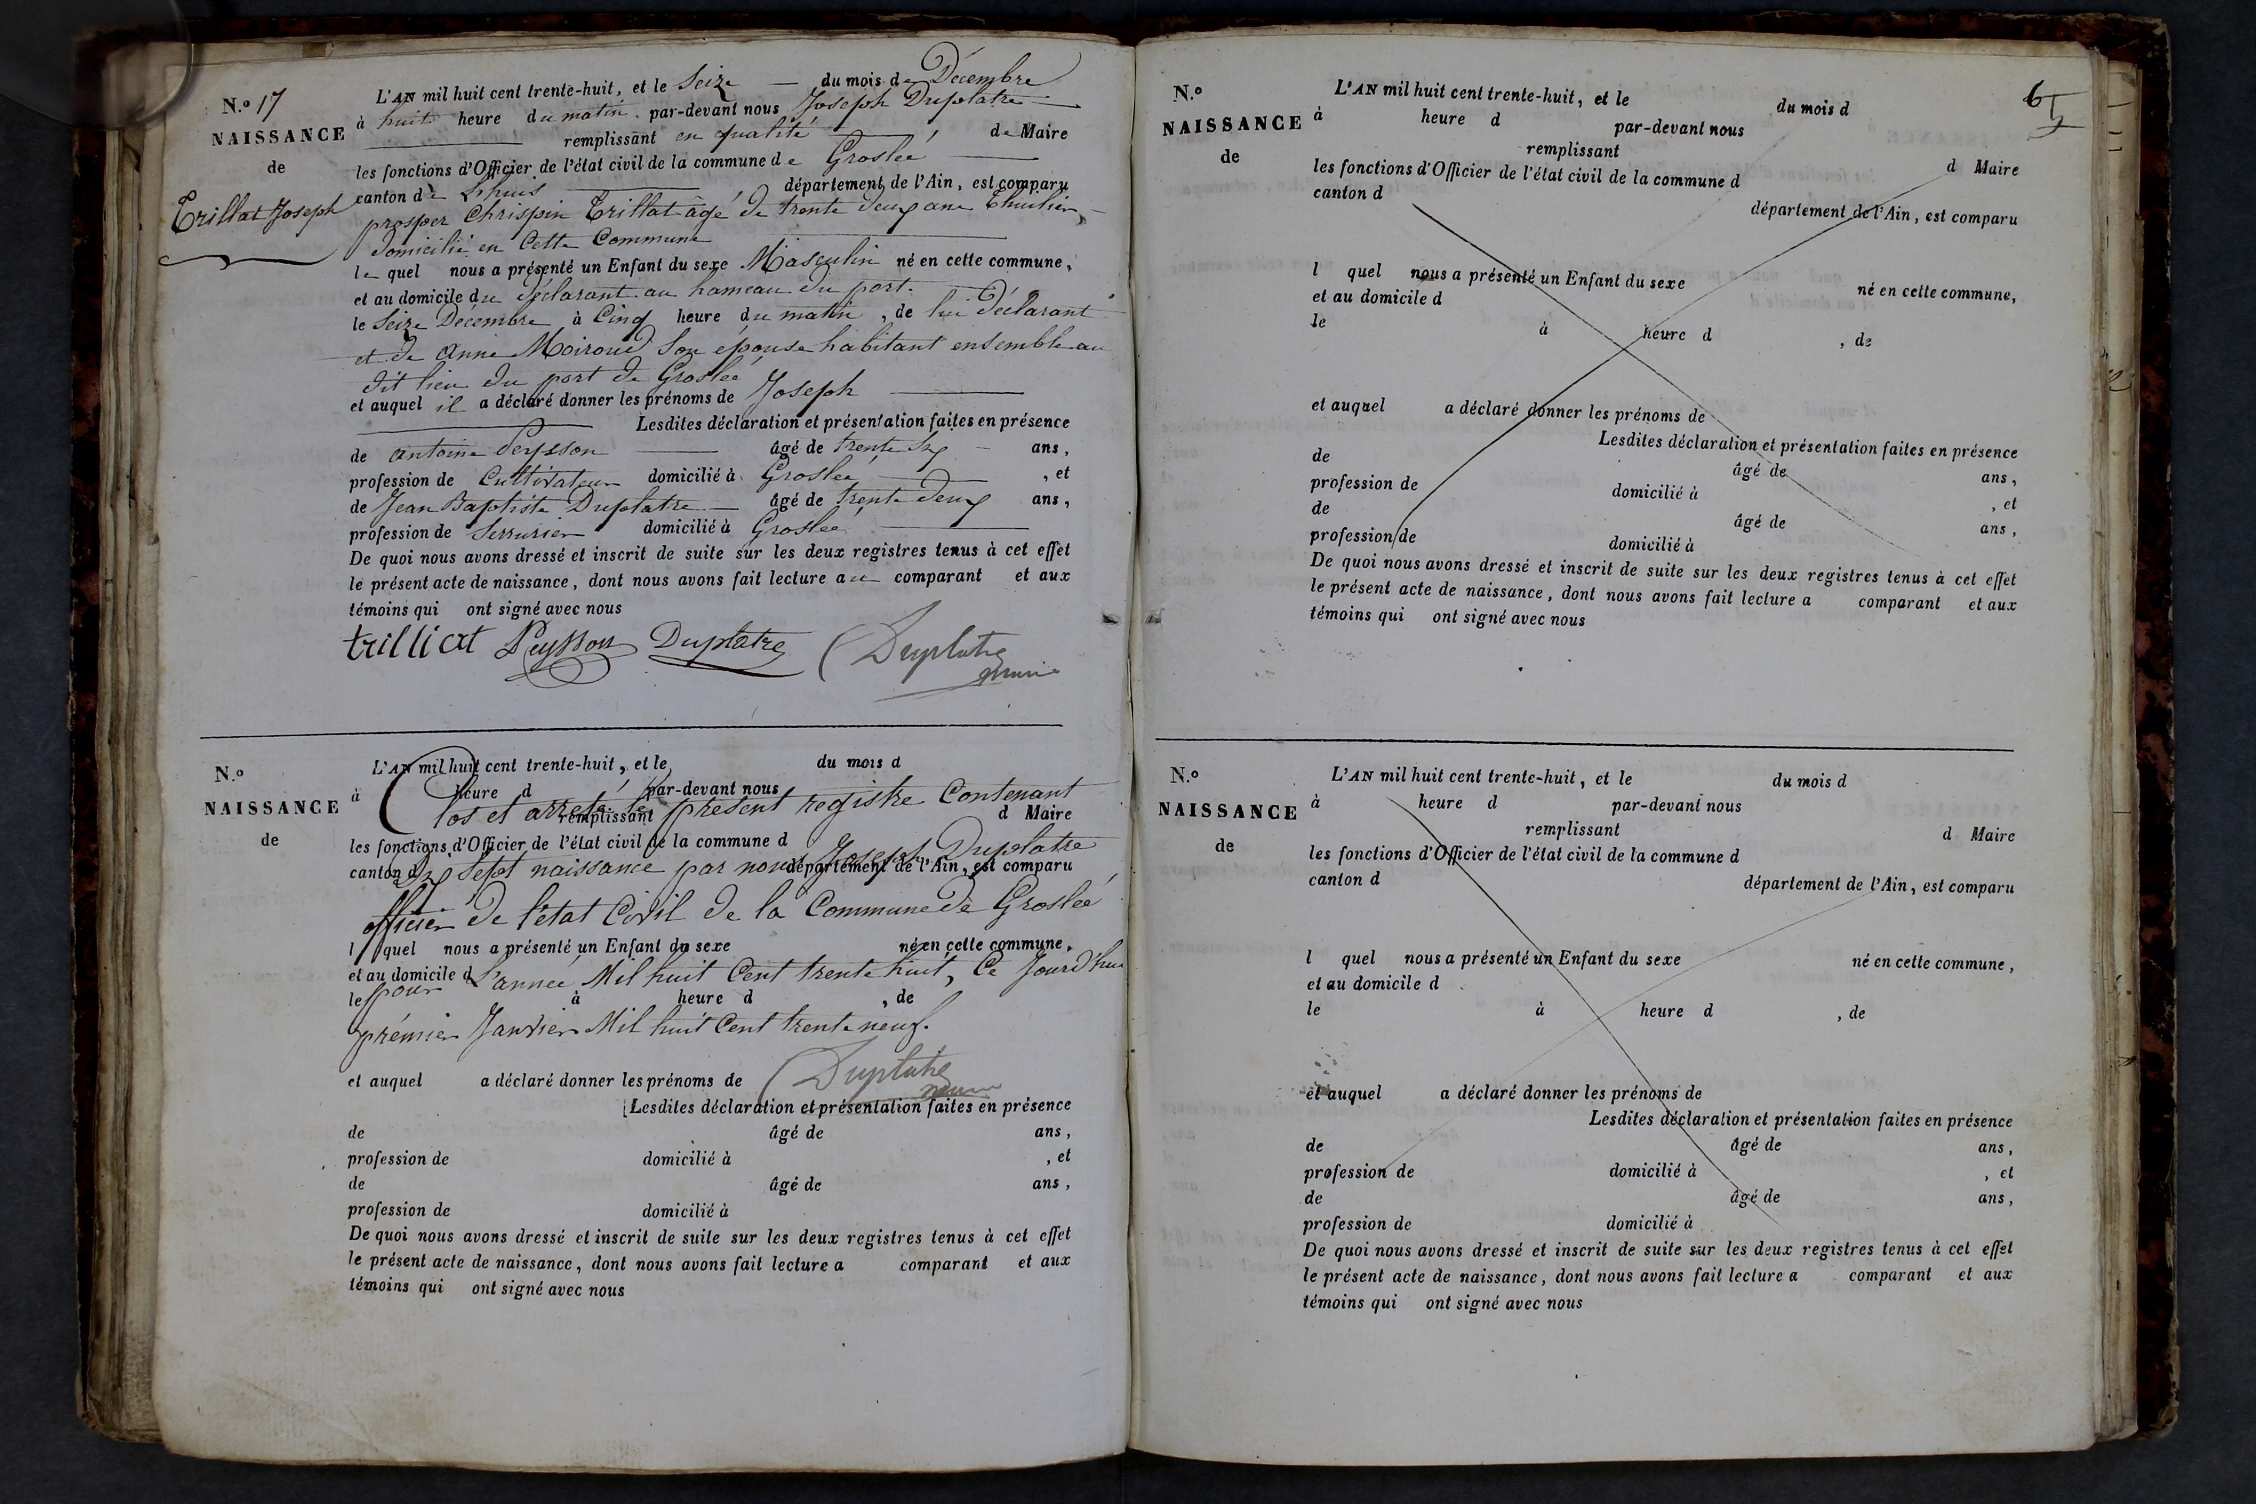 N.º 17
NAISSANCE
de
Trillat Joseph
L'AN mil huit cent trente-huit, et le Seize du mois de Décembre
à huit heure du matin. par-devant nous Joseph Duplatre
remplissant en qualité de Maire
les fonctions d'Officier de l'état civil de la commune de Groslée
canton de Lhuis département de l'Ain, est comparu
prosper Chrispin Trillat âgé de trente deux ans
domicilié en Cette Commune
le quel nous a présenté un Enfant du sexe Masculin né en cette commune,
et au domicile du déclarant au hameau du port.
le Seize Décembre à Cinq heure du matin, de lui déclarant
et de Anne Moiroud Son épouse habitant ensemble au
dit lieu du port de Groslée
et auquel il a déclaré donner les prénoms de Joseph
Lesdites déclaration et présentation faites en présence
de antoine Peysson âgé de trente Six ans,
profession de Cultivateur domicilié à Groslée, et
de Jean Baptiste Duplatre âgé de trente deux ans,
profession de Serrurier domicilié à Groslée
De quoi nous avons dressé et inscrit de suite sur les deux registres tenus à cet effet
le présent acte de naissance, dont nous avons fait lecture au comparant et aux
témoins qui ont signé avec nous
trilliat Peysson Duplatre Duplatre
maire
N.º
NAISSANCE
de
L'AN mil huit cent trente-huit, et le du mois d
à heure d par-devant nous
Clos et arreté le présent registre Contenant
remplissant d Maire
les fonctions d'Officier de l'état civil de la commune d
Dix Sept naissance par nous Joseph Duplatre
canton d département de l'Ain, est comparu
officier de l'état Civil de la Commune de Groslée
l quel nous a présenté un Enfant du sexe né en cette commune,
et au domicile d
pour L'année Mil huit Cent trente huit, Ce Jourd'hui
le à heure d, de
prémier Janvier Mil huit Cent trente neuf.
et auquel a déclaré donner les prénoms de Duplatre
maire
Lesdites déclaration et présentation faites en présence
de âgé de ans,
profession de domicilié à, et
de âgé de ans,
profession de domicilié à
De quoi nous avons dressé et inscrit de suite sur les deux registres tenus à cet effet
le présent acte de naissance, dont nous avons fait lecture a comparant et aux
témoins qui ont signé avec nous
N.º
NAISSANCE
de
L'AN mil huit cent trente-huit, et le du mois d
à heure d par-devant nous
remplissant d Maire
les fonctions d'Officier de l'état civil de la commune d
canton d département de l'Ain, est comparu
l quel nous a présenté un Enfant du sexe né en cette commune,
et au domicile d
le à heure d, de
et auquel a déclaré donner les prénoms de
Lesdites déclaration et présentation faites en présence
de âgé de ans,
profession de domicilié à, et
de âgé de ans,
profession de domicilié à
De quoi nous avons dressé et inscrit de suite sur les deux registres tenus à cet effet
le présent acte de naissance, dont nous avons fait lecture a comparant et aux
témoins qui ont signé avec nous
N.º
NAISSANCE
de
L'AN mil huit cent trente-huit, et le du mois d
à heure d par-devant nous
remplissant d Maire
les fonctions d'Officier de l'état civil de la commune d
canton d département de l'Ain, est comparu
l quel nous a présenté un Enfant du sexe né en cette commune,
et au domicile d
le à heure d, de
et auquel a déclaré donner les prénoms de
Lesdites déclaration et présentation faites en présence
de âgé de ans,
profession de domicilié à, et
de âgé de ans,
profession de domicilié à
De quoi nous avons dressé et inscrit de suite sur les deux registres tenus à cet effet
le présent acte de naissance, dont nous avons fait lecture a comparant et aux
témoins qui ont signé avec nous